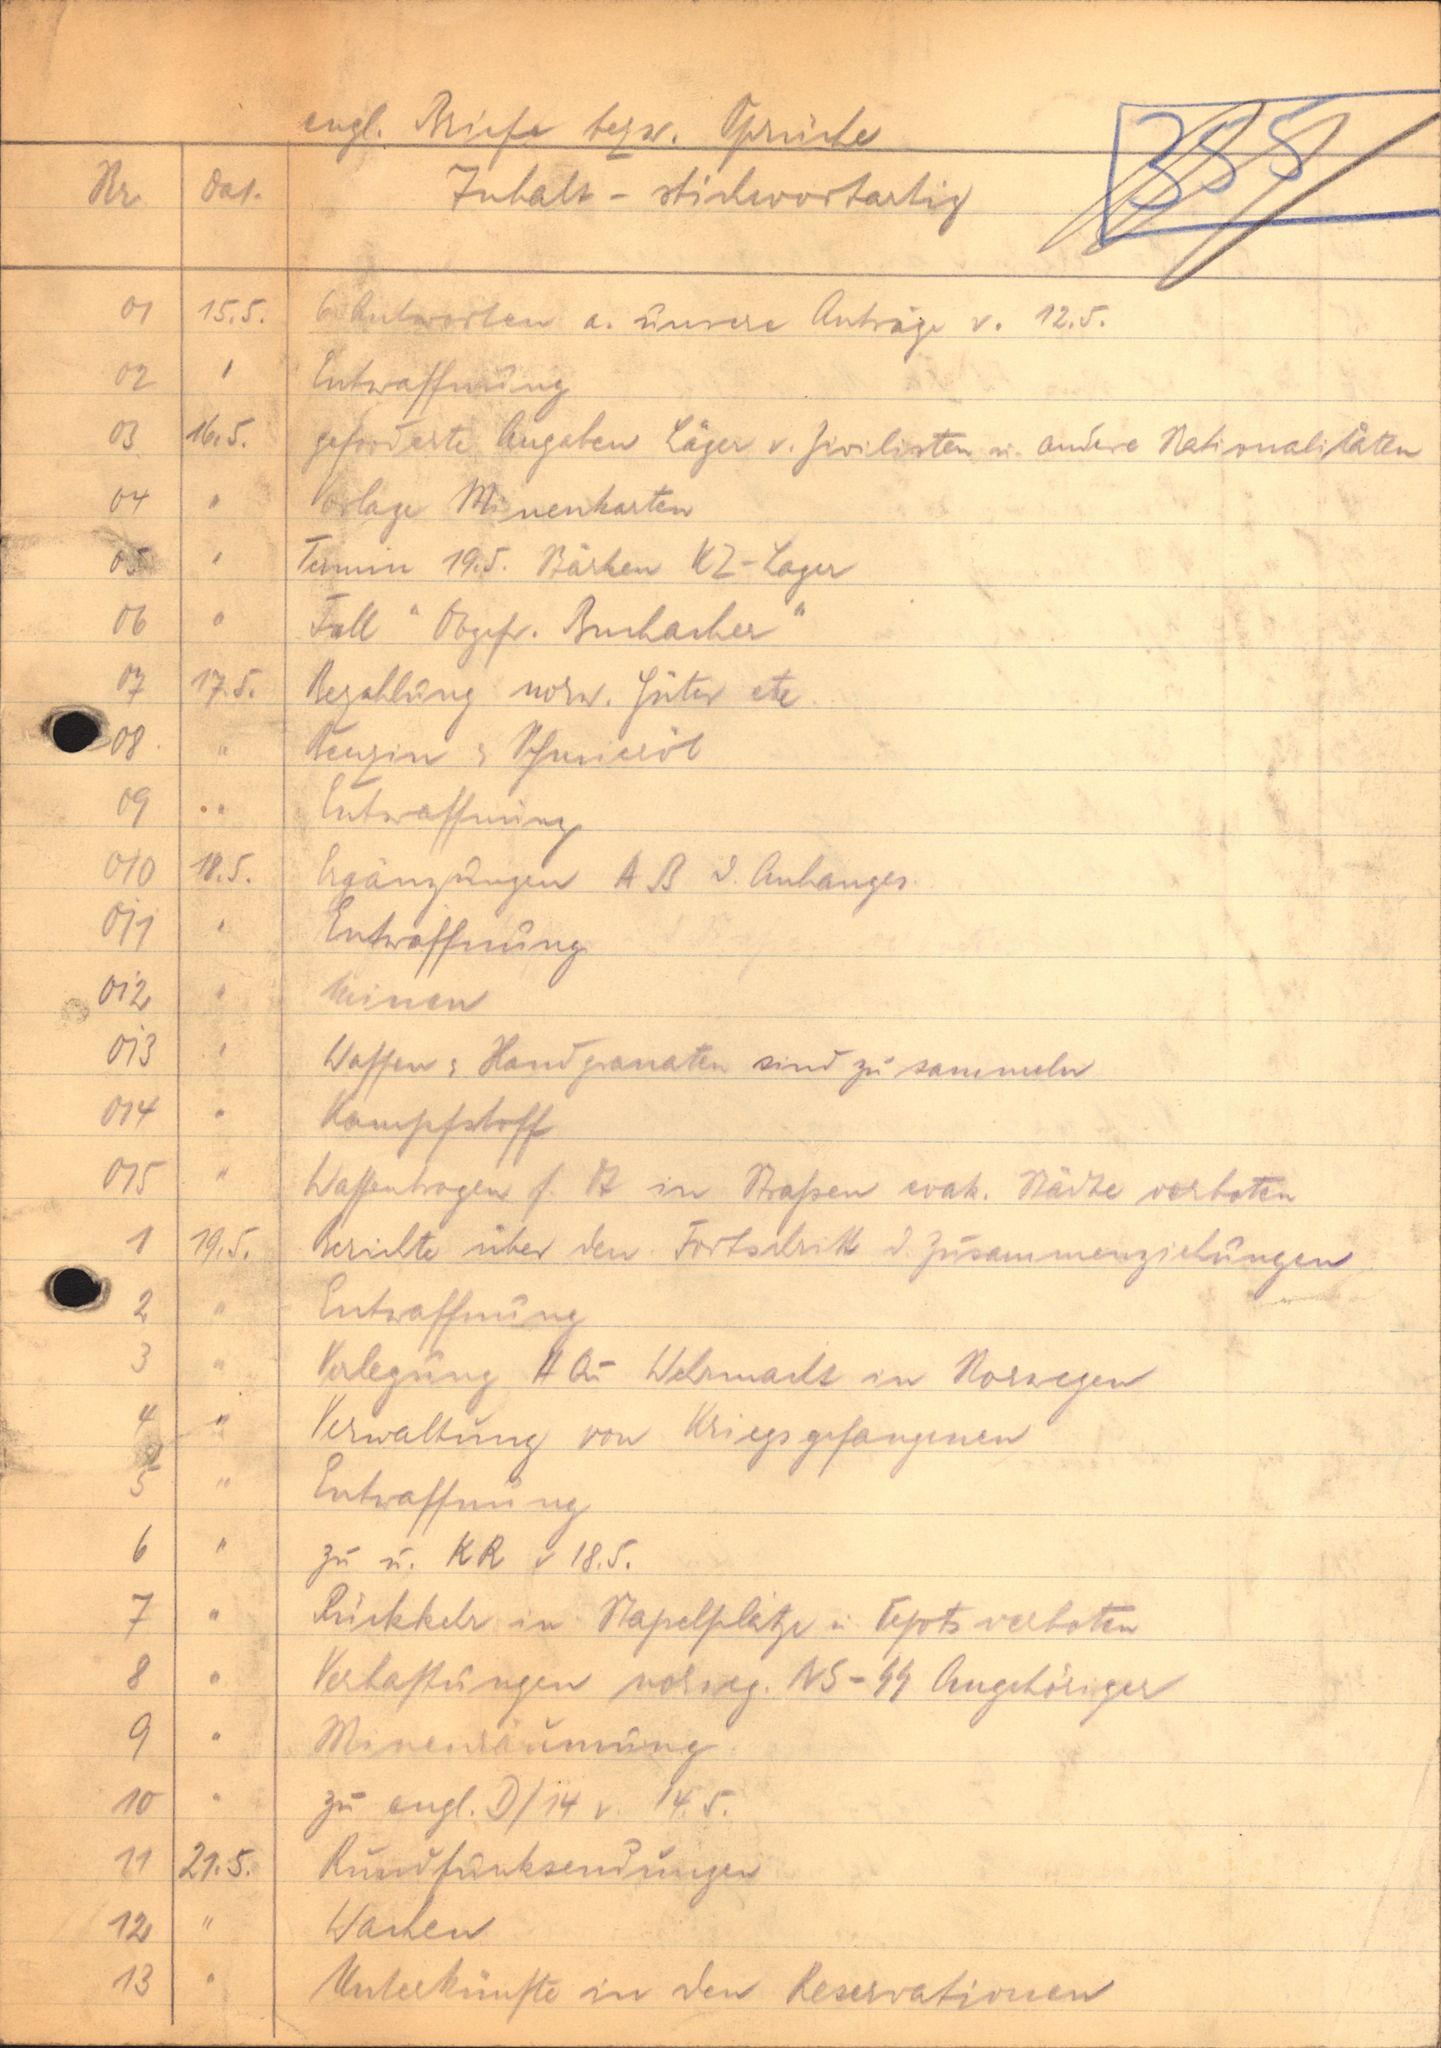 engl. Briefe bezw. Sprüche
355
Nr. Dat. Inhalt - stichwortartig
01 15.5. Antworten a. unsere Anträge v. 12.5.
02 " Entwaffnung
03 16.5. geforderte Angaben Läger v. Zivilisten u. andere Nationalitäten
04 " Vorlage Minenkarten
05 " Termin 19.5. Stärken KZ-Lager
06 " Fall "Obgefr. Buchacher"
07 17.5. Bezahlung norw. Güter etc.
08 " Benzin & Schmieröl
09 " Entwaffnung
010 18.5. Ergänzungen A B d. Anhanges
011 " Entwaffnung
012 " Minen
013 " Waffen & Handgranaten sind zu sammeln
014 " Kampfstoff
015 " Waffentragen f. in Straßen evak. Städte verboten
1 19.5. Berichte über den Fortschritt d. Zusammenziehungen
2 " Entwaffnung
3 " Verlegung H Qu Wehrmacht in Norwegen
4 " Verwaltung von Kriegsgefangenen
5 " Entwaffnung
6 " zu u. KR v 18.5.
7 " Rückkehr in Stapelplätze u. Depots verboten
8 " Verhaftungen norweg. NS-SS Angehöriger
9 " Minenräumung
10 " zu engl. D/14 v. 14.5.
11 21.5. Rundfunksendungen
12 " Wachen
13 " Unterkünfte in den Reservationen